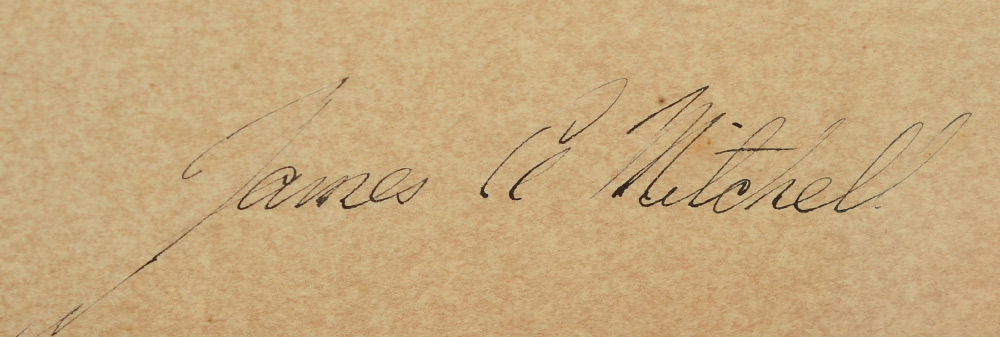 James C Mitchell